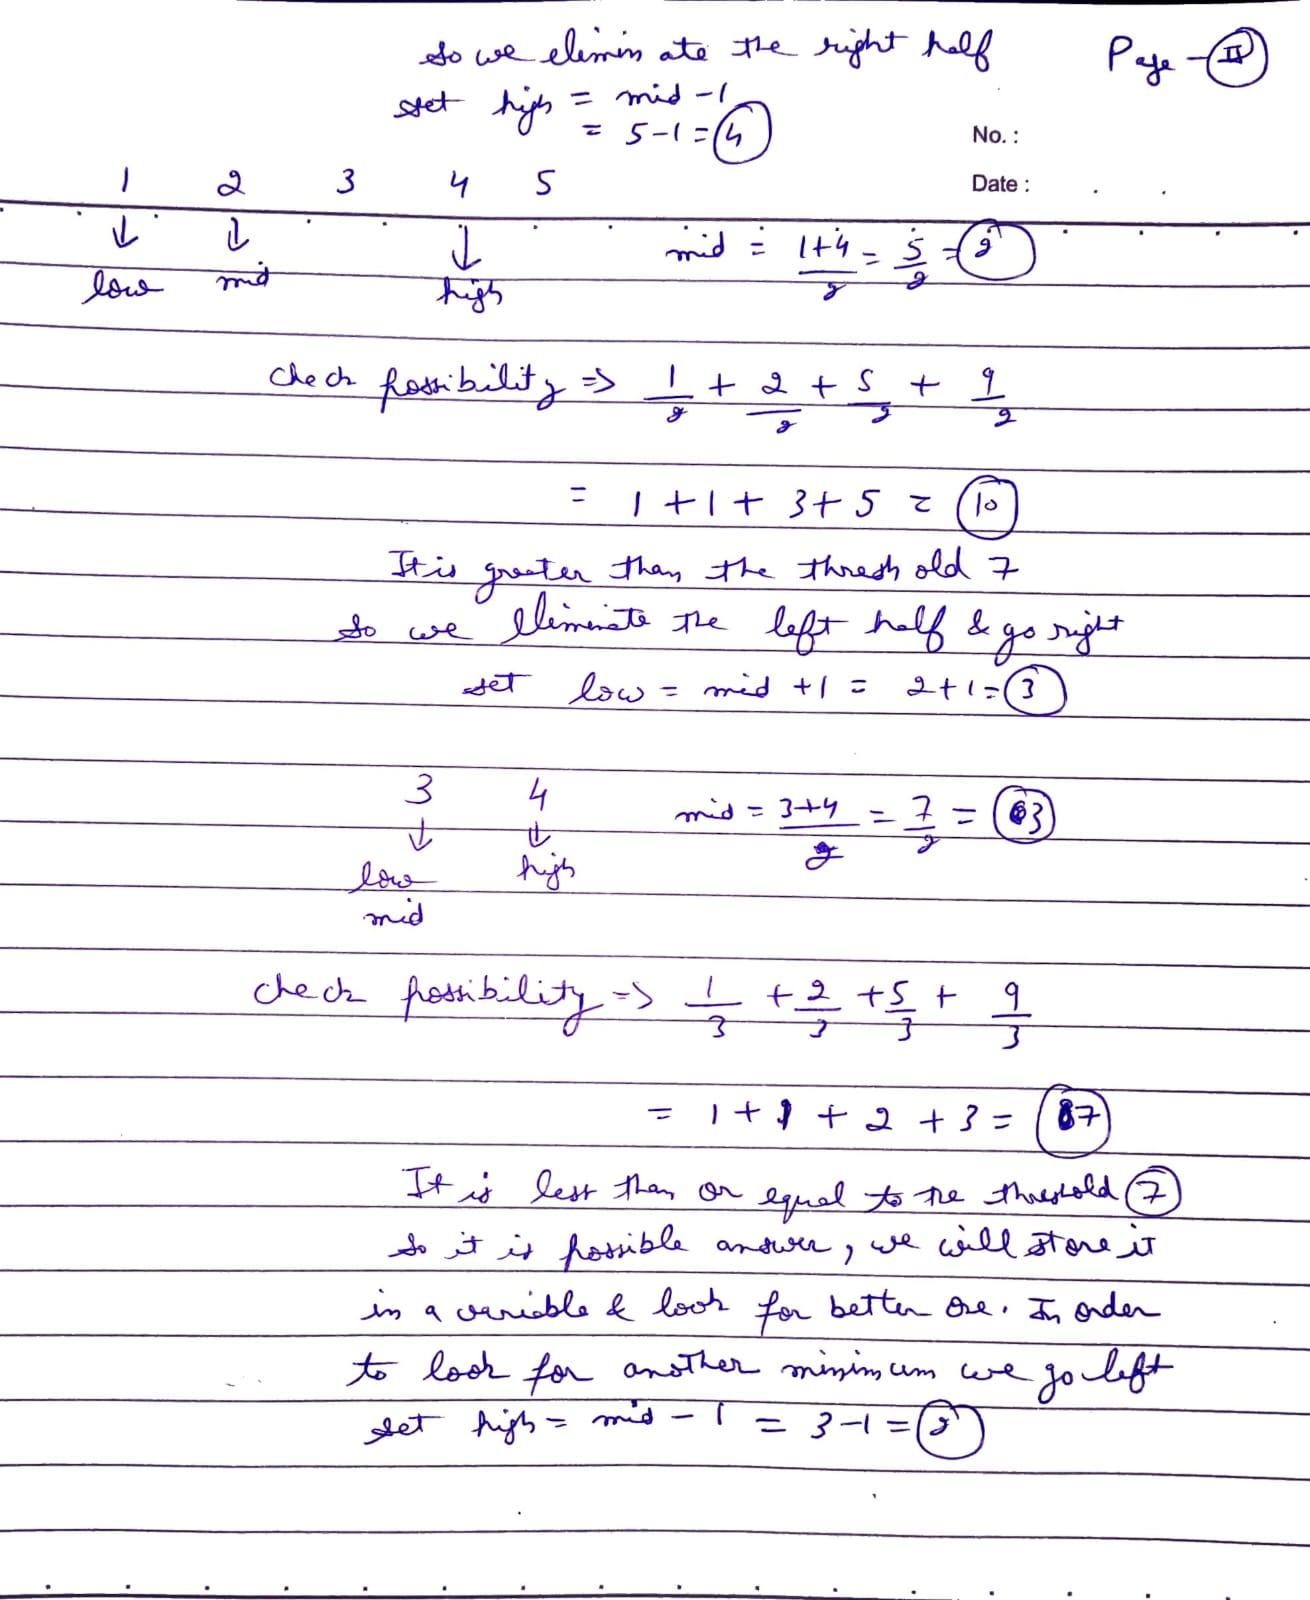 So we eliminate the right half Page - II
set high = mid - 1
= 5-1 = 4
No. :
1 2 3 4 5 Date :
↓ ↓ ↓ mid = 1+4/2 = 5/2 = 2
low mid high
Check possibility => 1/2 + 2/2 + 5/2 + 9/2
= 1 + 1 + 3 + 5 = 10
It is greater than the threshold 7
So we eliminate the left half & go right
set low = mid + 1 = 2+1 = 3
3 4 mid = 3+4/2 = 7/2 = 3
↓ ↓
low high
mid
Check possibility => 1/3 + 2/3 + 5/3 + 9/3
= 1 + 1 + 2 + 3 = 7
It is less than or equal to the threshold 7
So it is possible answer, we will store it
in a variable & look for better one. In order
to look for another minimum we go left
set high = mid - 1 = 3-1 = 2